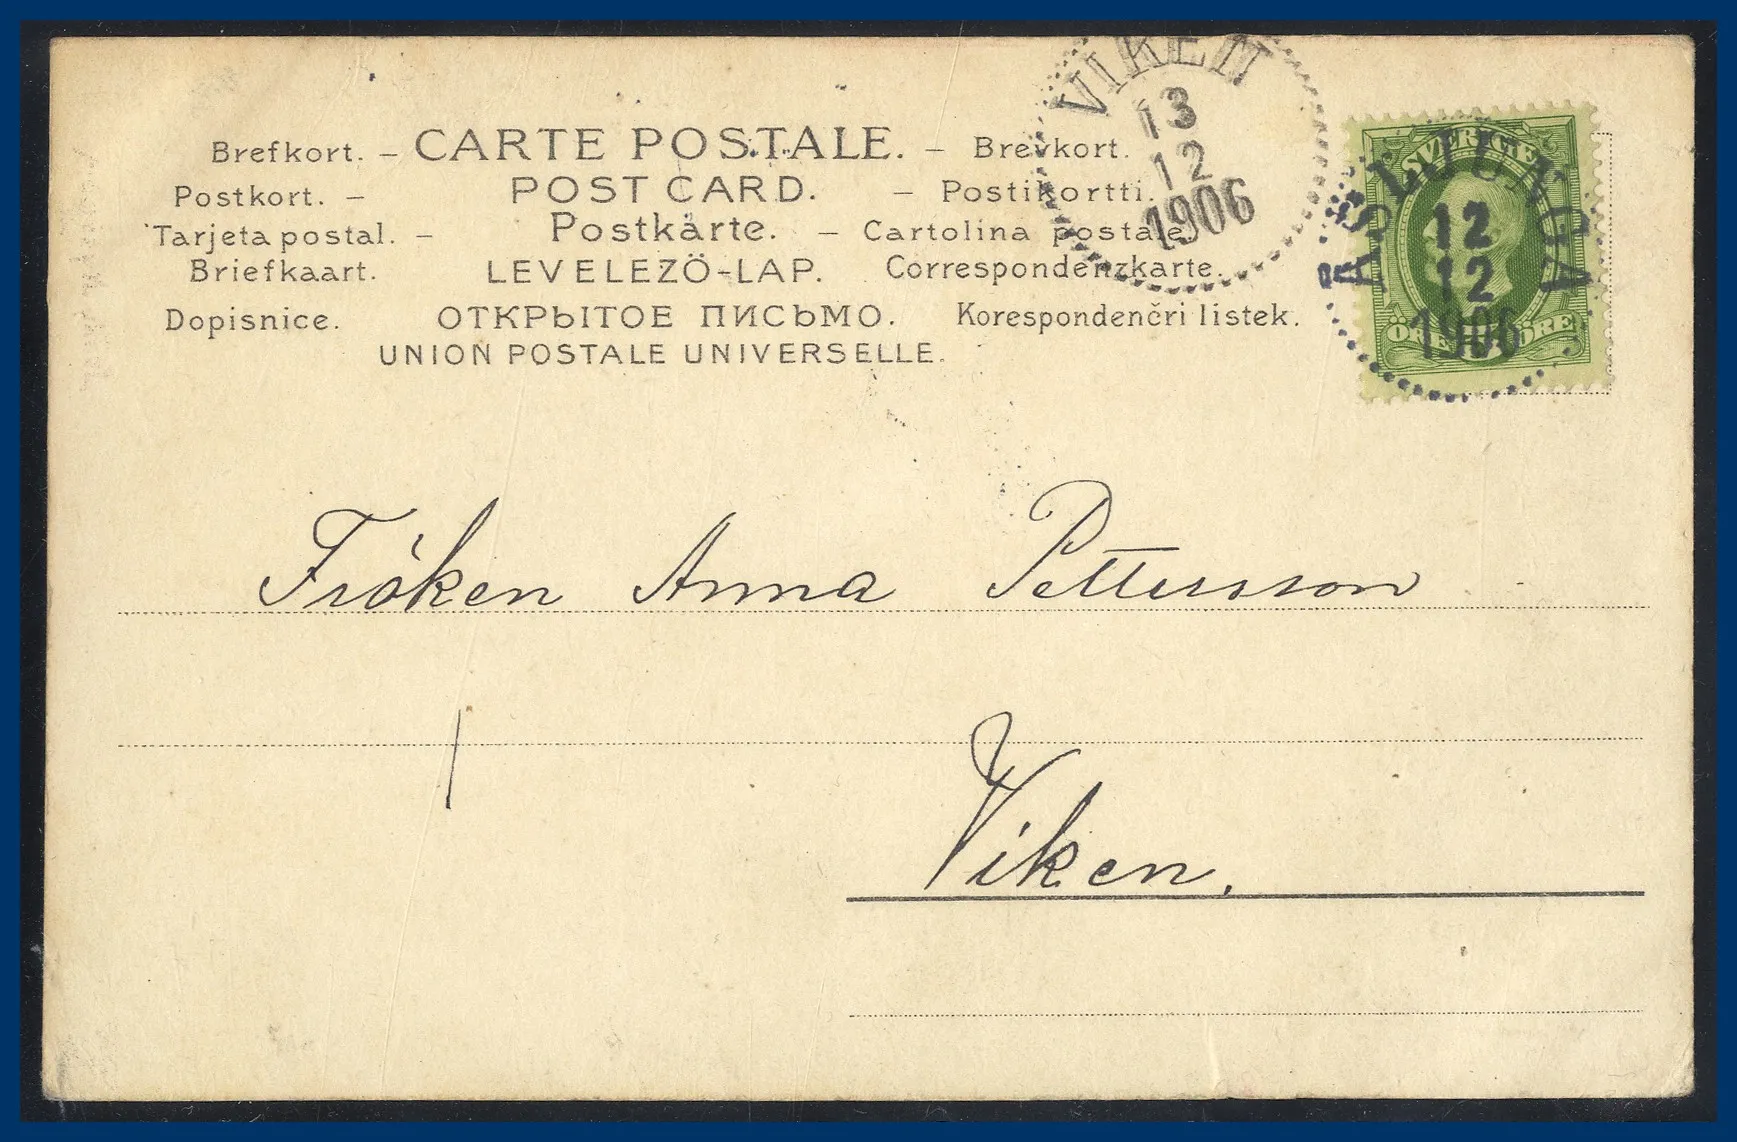 VIKEN
13
12
1906
Brefkort. – CARTE POSTALE. – Brevkort.
Postkort. – POST CARD. – Postikortti.
Tarjeta postal. – Postkarte. – Cartolina postale.
Briefkaart. LEVELEZÖ-LAP. Correspondenzkarte.
Dopisnice. ОТКРЫТОЕ ПИСЬМО. Korespondenčri listek.
UNION POSTALE UNIVERSELLE.
SVERIGE
ÅSLJUNGA
12
12
1906
ÖRE ÖRE
Fröken Anna Pettersson
Viken.